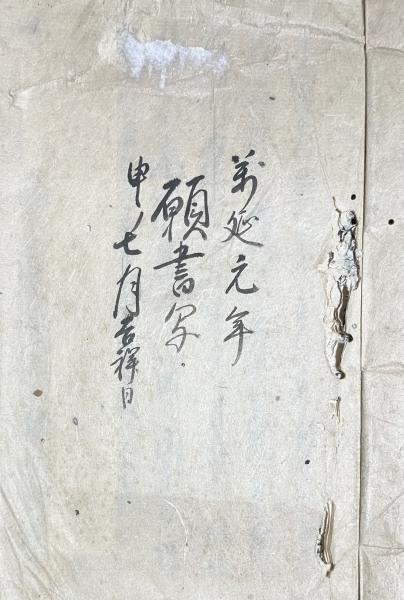 萬延元年
願書写
申ノ七月吉祥日